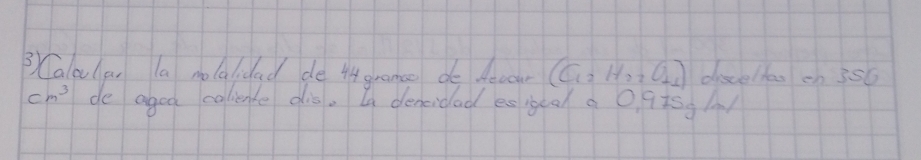 3) Calcular la molalidad de 44 gramos de Azucar (C12 H22 O11) disueltas en 356
cm³ de agua caliente dis. La dencidad es igual a 0,975g/ml